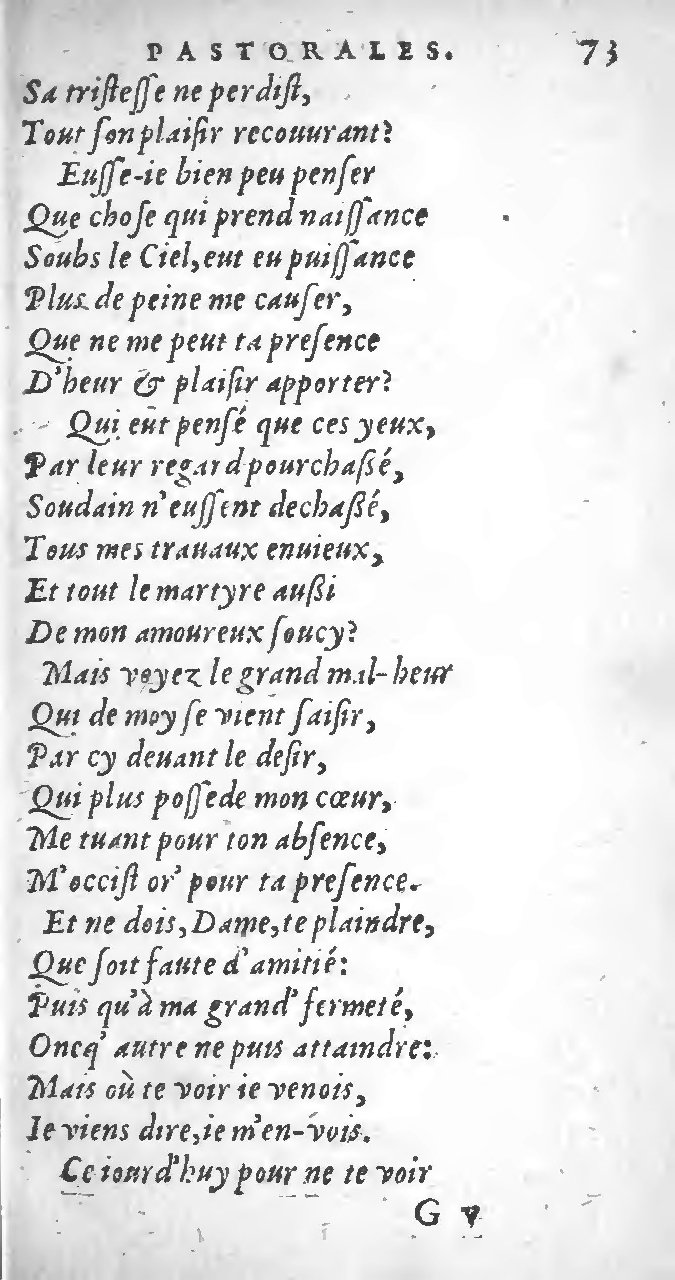 PASTORALES. 73
Sa tristeſſe ne perdiſt,
Tout ſon plaiſir recouurant?
Euſſe-ie bien peu penſer
Que choſe qui prend naiſſance
Soubs le Ciel, eut eu puiſſance
Plus de peine me cauſer,
Que ne me peut ta preſence
D'heur & plaiſir apporter?
Qui eût penſé que ces yeux,
Par leur regard pourchaßé,
Soudain n'euſſent dechaßé,
Tous mes trauaux enuieux,
Et tout le martyre außi
De mon amoureux ſoucy?
Mais voyez le grand mal-heur
Qui de moy ſe vient ſaiſir,
Par cy deuant le deſir,
Qui plus poſſede mon cœur,
Me tuant pour ton abſence,
M'occiſt or' pour ta preſence.
Et ne dois, Dame, te plaindre,
Que ſoit faute d'amitié:
Puis qu'à ma grand' fermeté,
Oncq' autre ne puis attaindre:
Mais où te voir ie venois,
Ie viens dire, ie m'en-vois.
Ce iourd'huy pour ne te voir
G v